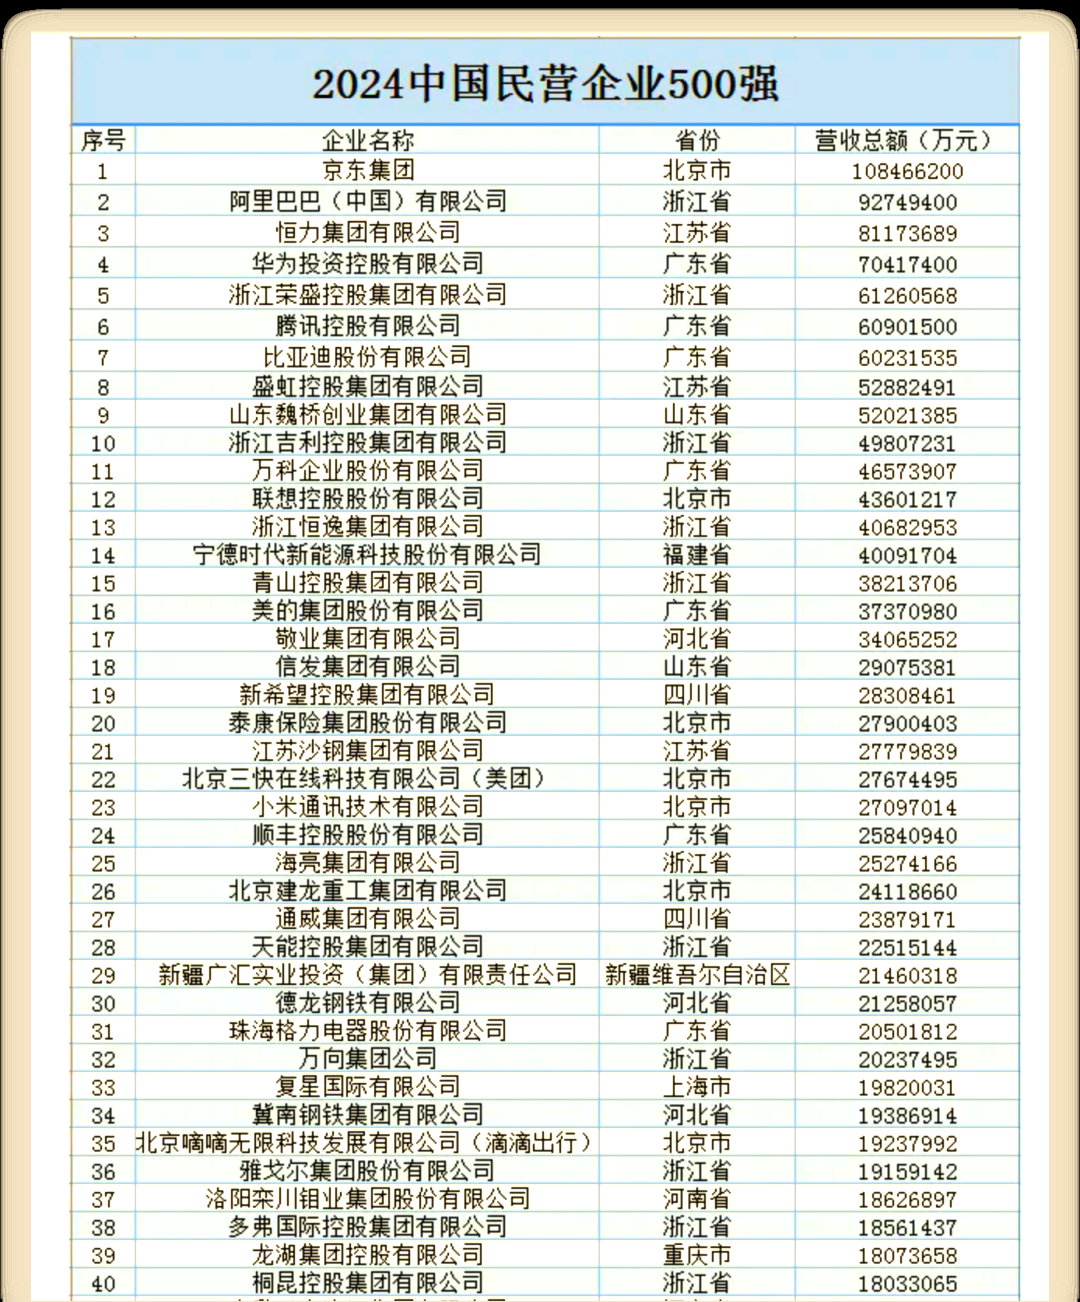 2024中国民营企业500强
序号 企业名称 省份 营收总额（万元）
1 京东集团 北京市 108466200
2 阿里巴巴（中国）有限公司 浙江省 92749400
3 恒力集团有限公司 江苏省 81173689
4 华为投资控股有限公司 广东省 70417400
5 浙江荣盛控股集团有限公司 浙江省 61260568
6 腾讯控股有限公司 广东省 60901500
7 比亚迪股份有限公司 广东省 60231535
8 盛虹控股集团有限公司 江苏省 52882491
9 山东魏桥创业集团有限公司 山东省 52021385
10 浙江吉利控股集团有限公司 浙江省 49807231
11 万科企业股份有限公司 广东省 46573907
12 联想控股股份有限公司 北京市 43601217
13 浙江恒逸集团有限公司 浙江省 40682953
14 宁德时代新能源科技股份有限公司 福建省 40091704
15 青山控股集团有限公司 浙江省 38213706
16 美的集团股份有限公司 广东省 37370980
17 敬业集团有限公司 河北省 34065252
18 信发集团有限公司 山东省 29075381
19 新希望控股集团有限公司 四川省 28308461
20 泰康保险集团股份有限公司 北京市 27900403
21 江苏沙钢集团有限公司 江苏省 27779839
22 北京三快在线科技有限公司（美团） 北京市 27674495
23 小米通讯技术有限公司 北京市 27097014
24 顺丰控股股份有限公司 广东省 25840940
25 海亮集团有限公司 浙江省 25274166
26 北京建龙重工集团有限公司 北京市 24118660
27 通威集团有限公司 四川省 23879171
28 天能控股集团有限公司 浙江省 22515144
29 新疆广汇实业投资（集团）有限责任公司 新疆维吾尔自治区 21460318
30 德龙钢铁有限公司 河北省 21258057
31 珠海格力电器股份有限公司 广东省 20501812
32 万向集团公司 浙江省 20237495
33 复星国际有限公司 上海市 19820031
34 冀南钢铁集团有限公司 河北省 19386914
35 北京嘀嘀无限科技发展有限公司（滴滴出行） 北京市 19237992
36 雅戈尔集团股份有限公司 浙江省 19159142
37 洛阳栾川钼业集团股份有限公司 河南省 18626897
38 多弗国际控股集团有限公司 浙江省 18561437
39 龙湖集团控股有限公司 重庆市 18073658
40 桐昆控股集团有限公司 浙江省 18033065